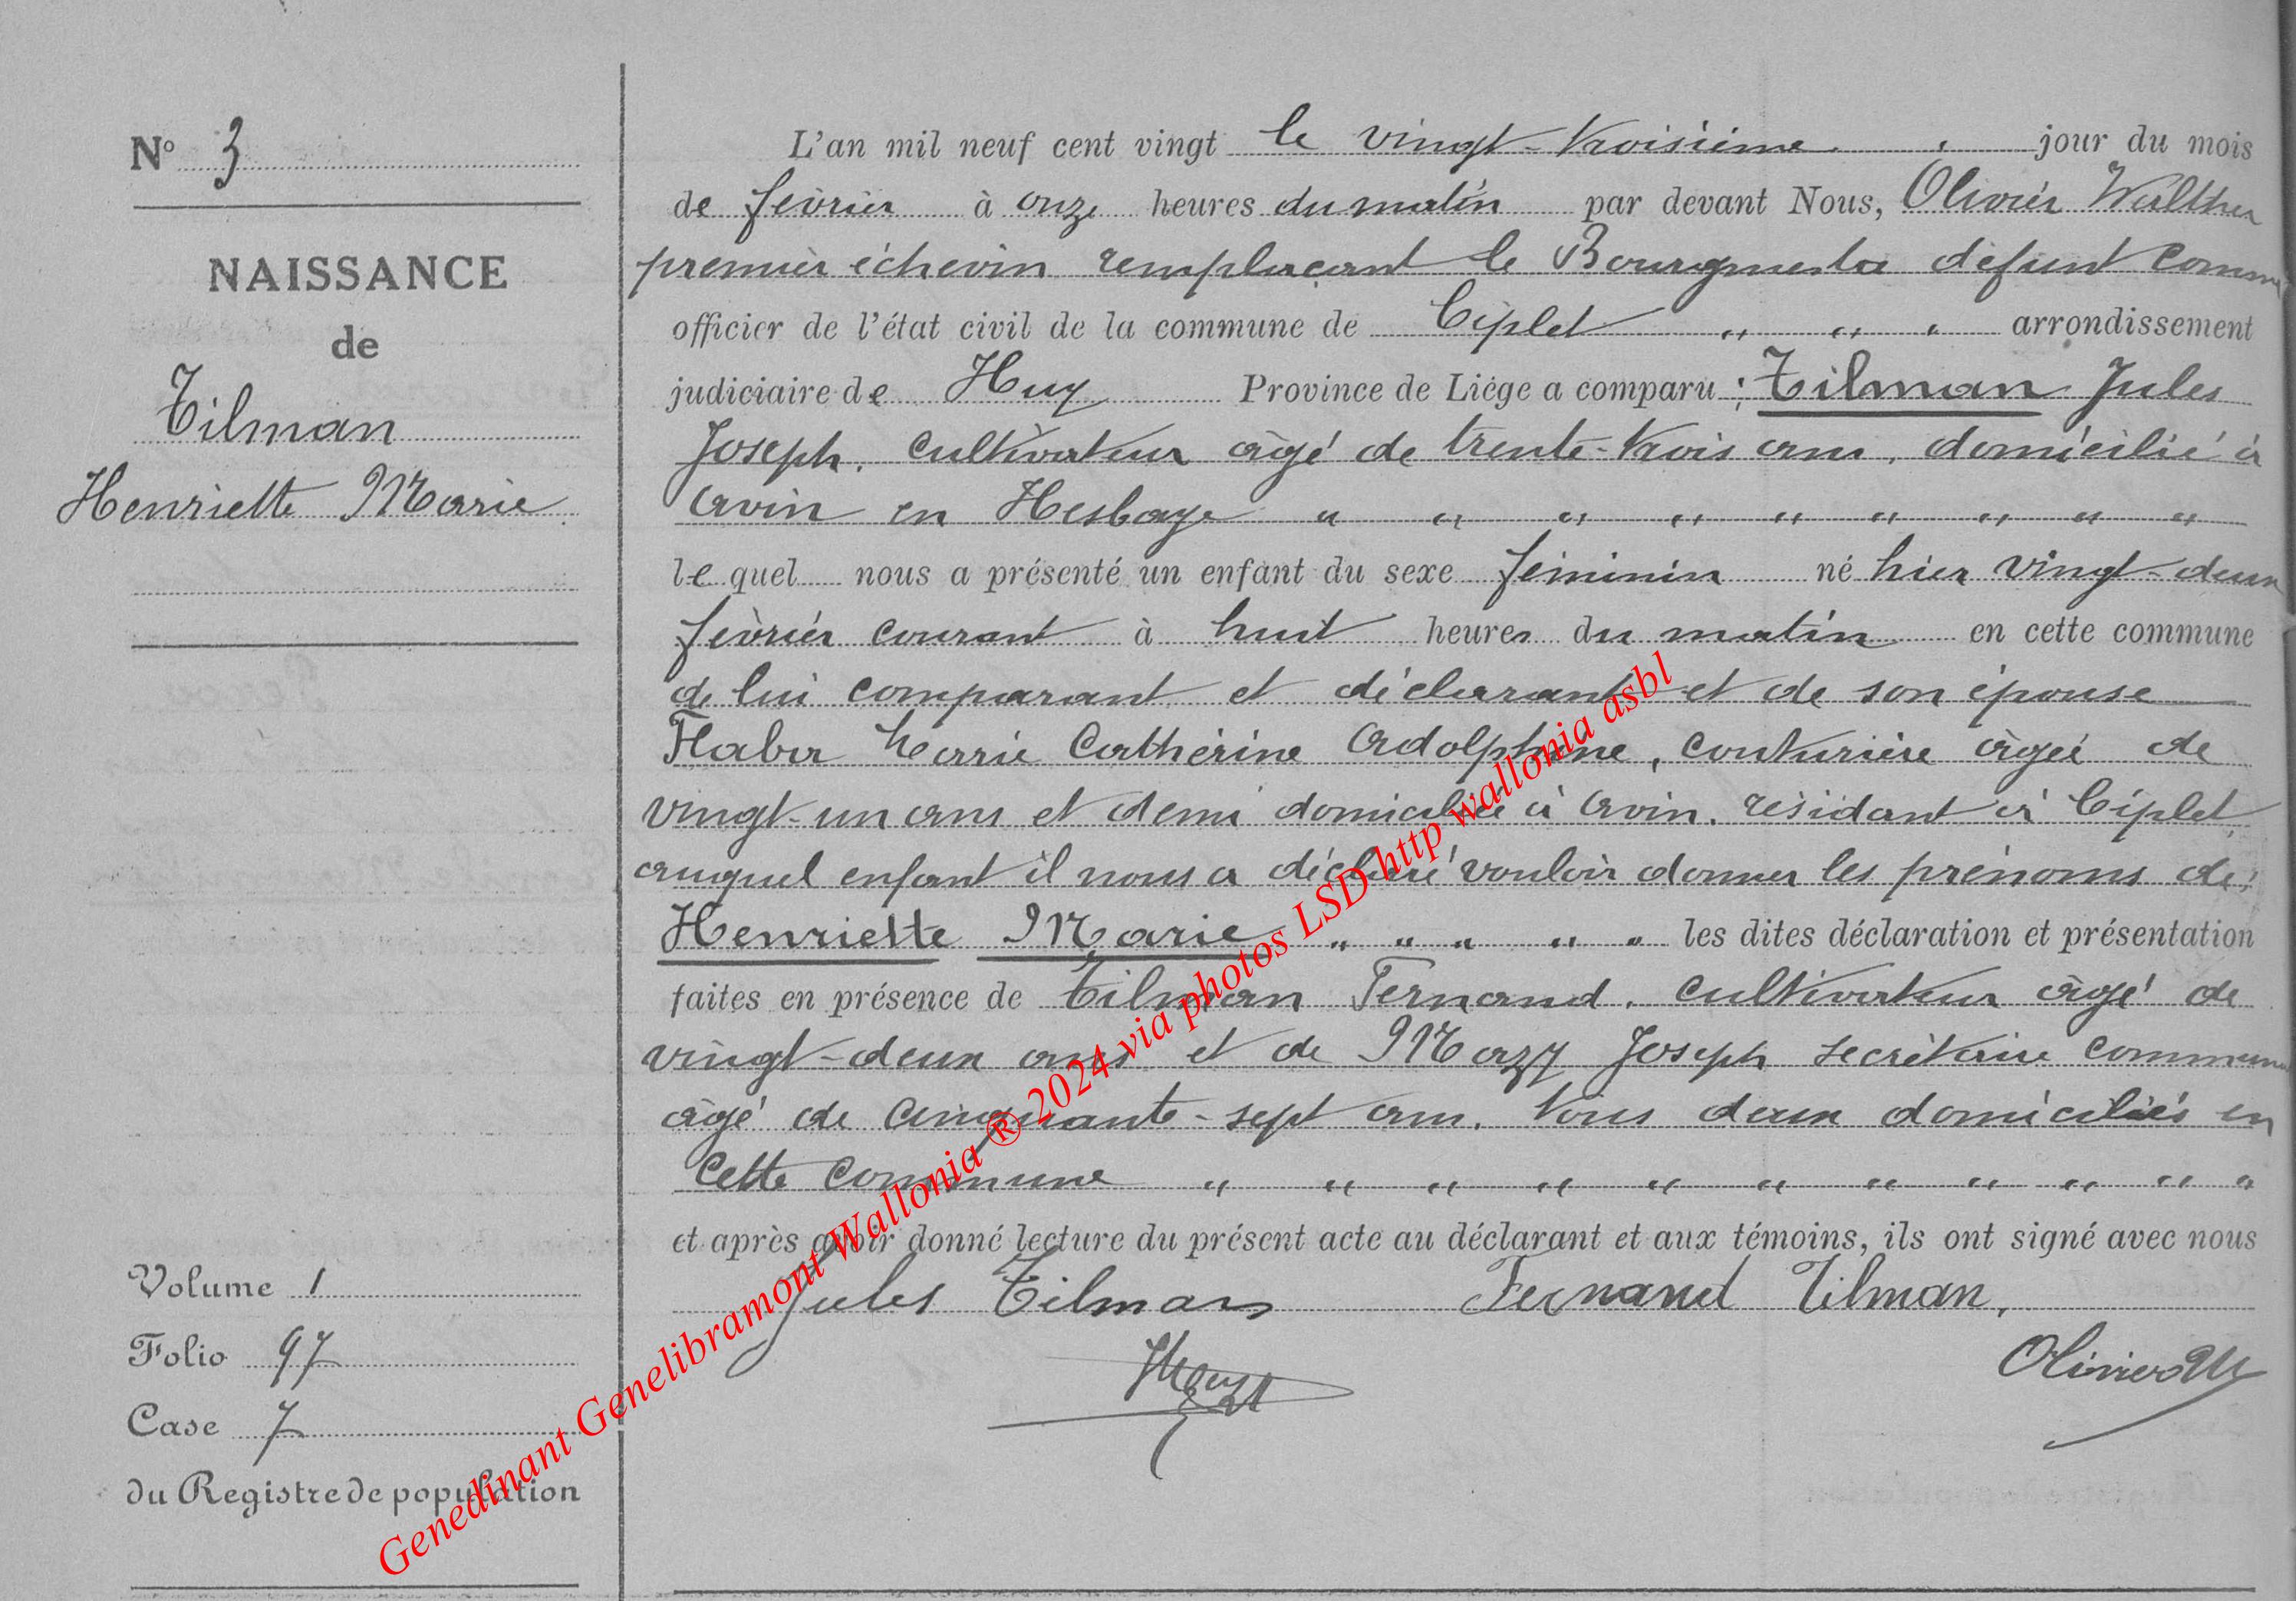 N° 3
NAISSANCE
de
Tilman
Henriette Marie
Volume 1
Folio 97
Case 7
du Registre de population
L'an mil neuf cent vingt le vingt-troisième jour du mois
de février à onze heures du matin par devant Nous, Olivier Walther
premier échevin remplaçant le Bourgmestre défunt comme
officier de l'état civil de la commune de Ciplet " " " arrondissement
judiciaire de Huy Province de Liége a comparu : Tilman Jules
Joseph, cultivateur âgé de trente-trois ans, domicilié à
Avin en Hesbaye " " " " " " " " "
lequel nous a présenté un enfant du sexe féminin né hier vingt-deux
février courant à huit heures du matin en cette commune
de lui comparant et déclarant et de son épouse
Flaba Marie Catherine Adolphine, couturière âgée de
vingt-un ans et demi domiciliée à Avin, résidant à Ciplet,
auquel enfant il nous a déclaré vouloir donner les prénoms de:
Henriette Marie " " " " " les dites déclaration et présentation
faites en présence de Tilman Fernand, cultivateur âgé de
vingt-deux ans et de Mazy Joseph secrétaire communal
âgé de cinquante-sept ans, tous deux domiciliés en
cette commune " " " " " " " " " " "
et après avoir donné lecture du présent acte au déclarant et aux témoins, ils ont signé avec nous
Jules Tilman Fernand Tilman,
JMazy Olivier W
Genedinant Genelibramont Wallonia ® 2024 via photos LSD http wallonia asbl